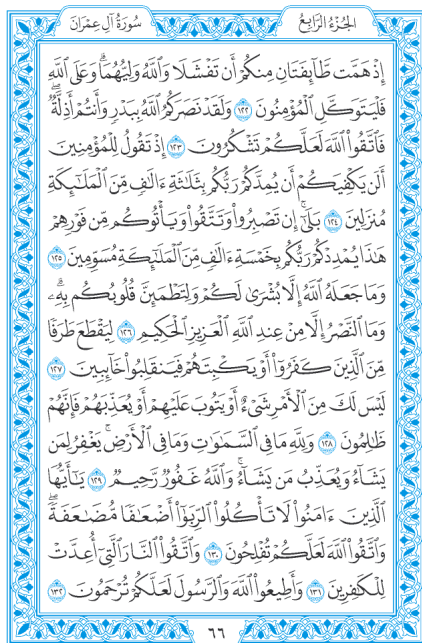 سُورَةُ آلِ عِمْرَانَ
الجُزْءُ الرَّابِعُ
إِذْ هَمَّت طَّآئِفَتَانِ مِنكُمْ أَن تَفْشَلَا وَٱللَّهُ وَلِيُّهُمَاۗ وَعَلَى ٱللَّهِ
فَلْيَتَوَكَّلِ ٱلْمُؤْمِنُونَ ١٢٢ وَلَقَدْ نَصَرَكُمُ ٱللَّهُ بِبَدْرٍ وَأَنتُمْ أَذِلَّةٌۖ
فَٱتَّقُوا۟ ٱللَّهَ لَعَلَّكُمْ تَشْكُرُونَ ١٢٣ إِذْ تَقُولُ لِلْمُؤْمِنِينَ
أَلَن يَكْفِيَكُمْ أَن يُمِدَّكُمْ رَبُّكُم بِثَلَٰثَةِ ءَالَٰفٍ مِّنَ ٱلْمَلَٰٓئِكَةِ
مُنزَلِينَ ١٢٤ بَلَىٰٓۚ إِن تَصْبِرُوا۟ وَتَتَّقُوا۟ وَيَأْتُوكُم مِّن فَوْرِهِمْ
هَٰذَا يُمْدِدْكُمْ رَبُّكُم بِخَمْسَةِ ءَالَٰفٍ مِّنَ ٱلْمَلَٰٓئِكَةِ مُسَوِّمِينَ ١٢٥
وَمَا جَعَلَهُ ٱللَّهُ إِلَّا بُشْرَىٰ لَكُمْ وَلِتَطْمَئِنَّ قُلُوبُكُم بِهِۦۗ
وَمَا ٱلنَّصْرُ إِلَّا مِنْ عِندِ ٱللَّهِ ٱلْعَزِيزِ ٱلْحَكِيمِ ١٢٦ لِيَقْطَعَ طَرَفًا
مِّنَ ٱلَّذِينَ كَفَرُوٓا۟ أَوْ يَكْبِتَهُمْ فَيَنقَلِبُوا۟ خَآئِبِينَ ١٢٧
لَيْسَ لَكَ مِنَ ٱلْأَمْرِ شَىْءٌ أَوْ يَتُوبَ عَلَيْهِمْ أَوْ يُعَذِّبَهُمْ فَإِنَّهُمْ
ظَٰلِمُونَ ١٢٨ وَلِلَّهِ مَا فِى ٱلسَّمَٰوَٰتِ وَمَا فِى ٱلْأَرْضِۚ يَغْفِرُ لِمَن
يَشَآءُ وَيُعَذِّبُ مَن يَشَآءُۚ وَٱللَّهُ غَفُورٌ رَّحِيمٌ ١٢٩ يَٰٓأَيُّهَا
ٱلَّذِينَ ءَامَنُوا۟ لَا تَأْكُلُوا۟ ٱلرِّبَوٰٓا۟ أَضْعَٰفًا مُّضَٰعَفَةًۖ
وَٱتَّقُوا۟ ٱللَّهَ لَعَلَّكُمْ تُفْلِحُونَ ١٣٠ وَٱتَّقُوا۟ ٱلنَّارَ ٱلَّتِىٓ أُعِدَّتْ
لِلْكَٰفِرِينَ ١٣١ وَأَطِيعُوا۟ ٱللَّهَ وَٱلرَّسُولَ لَعَلَّكُمْ تُرْحَمُونَ ١٣٢
٦٦